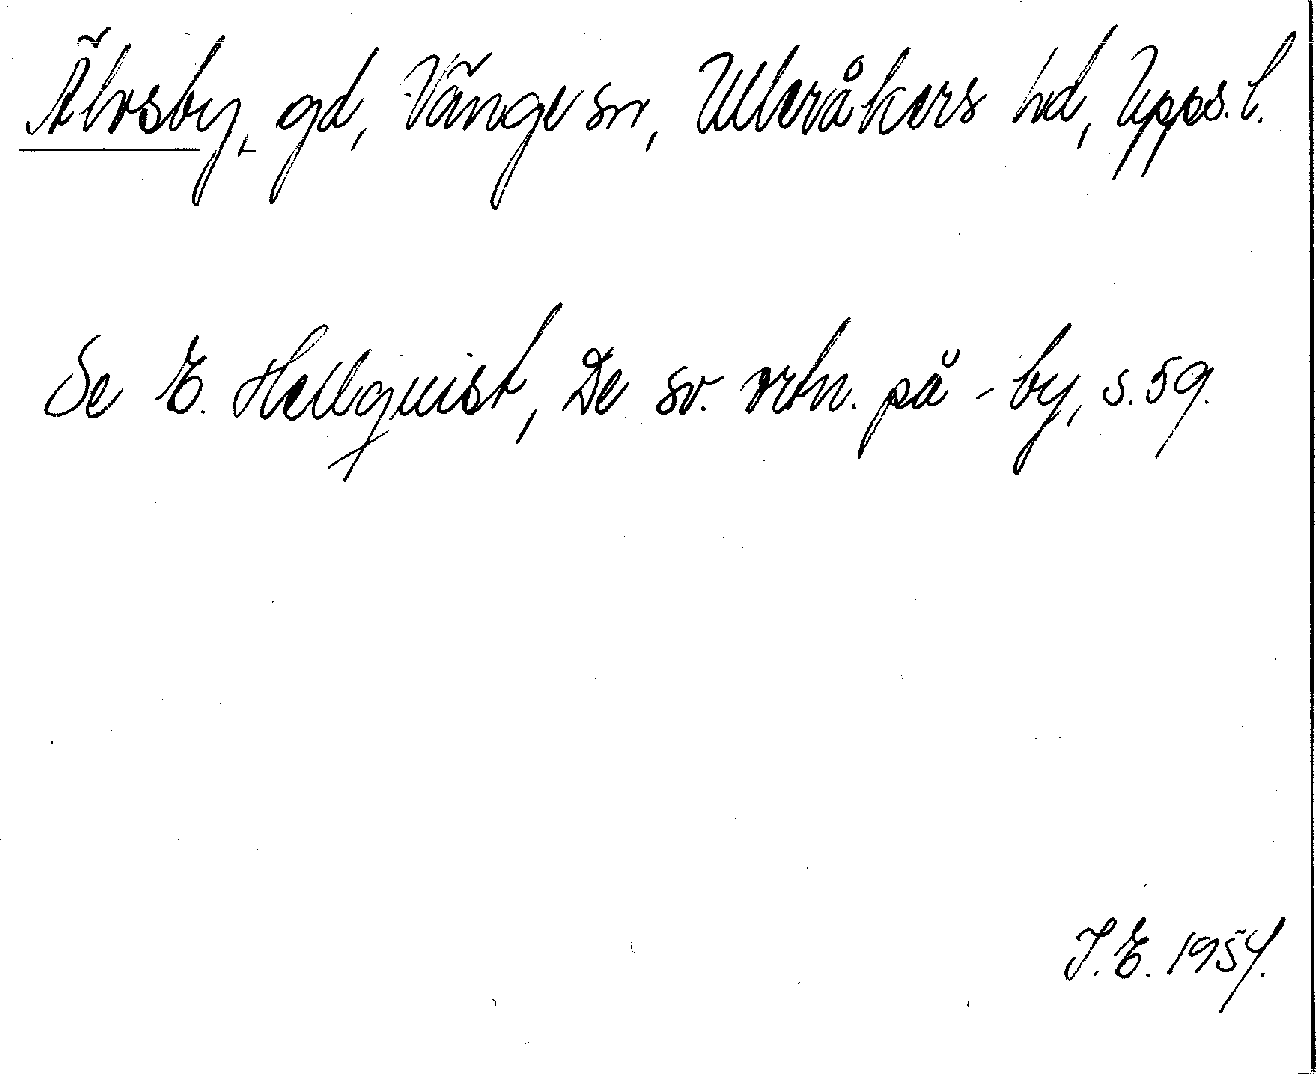 Älvsby, gd, Vänge sn, Ulleråkers hd, Upps. l.
Se E. Hellquist, De sv. ortn. på -by, s. 59.
I. E. 1954.